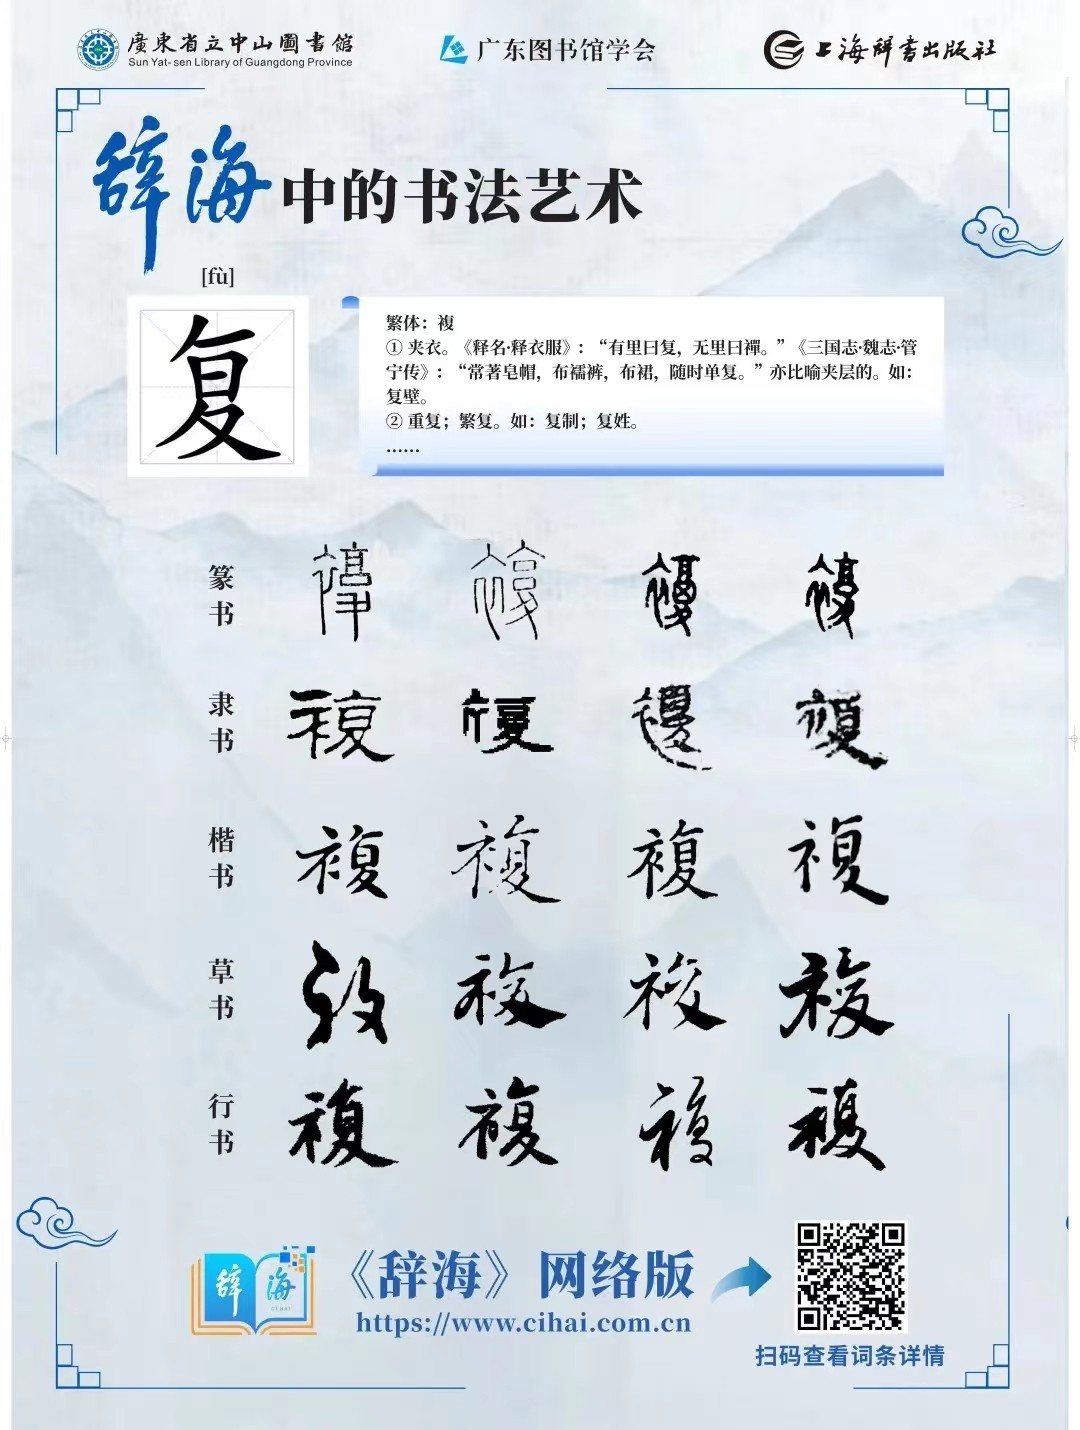 廣東省立中山圖書館
Sun Yat-sen Library of Guangdong Province
广东图书馆学会
上海辞書出版社
辞海中的书法艺术
[fù]
复
繁体：複
① 夹衣。《释名·释衣服》：“有里曰复，无里曰襌。”《三国志·魏志·管
宁传》：“常著皂帽，布襦裤，布裙，随时单复。”亦比喻夹层的。如：
复壁。
② 重复；繁复。如：复制；复姓。
……
篆书
複 複 複 複
隶书
複 複 複 複
楷书
複 複 複 複
草书
複 複 複 複
行书
複 複 複 複
辞海
cihai
《辞海》网络版
https://www.cihai.com.cn
扫码查看词条详情